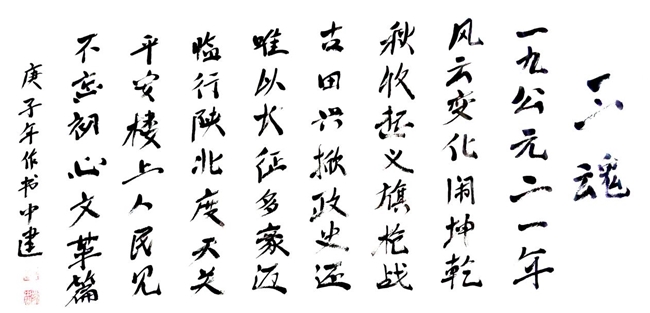 魂
一九公元二一年
风云变化闹坤乾
秋收起义旗枪战
古田兴掀政史还
唯以长征多豪迈
临行陕北度天关
平安楼上人民见
不忘初心文革篇
庚子年作书中建